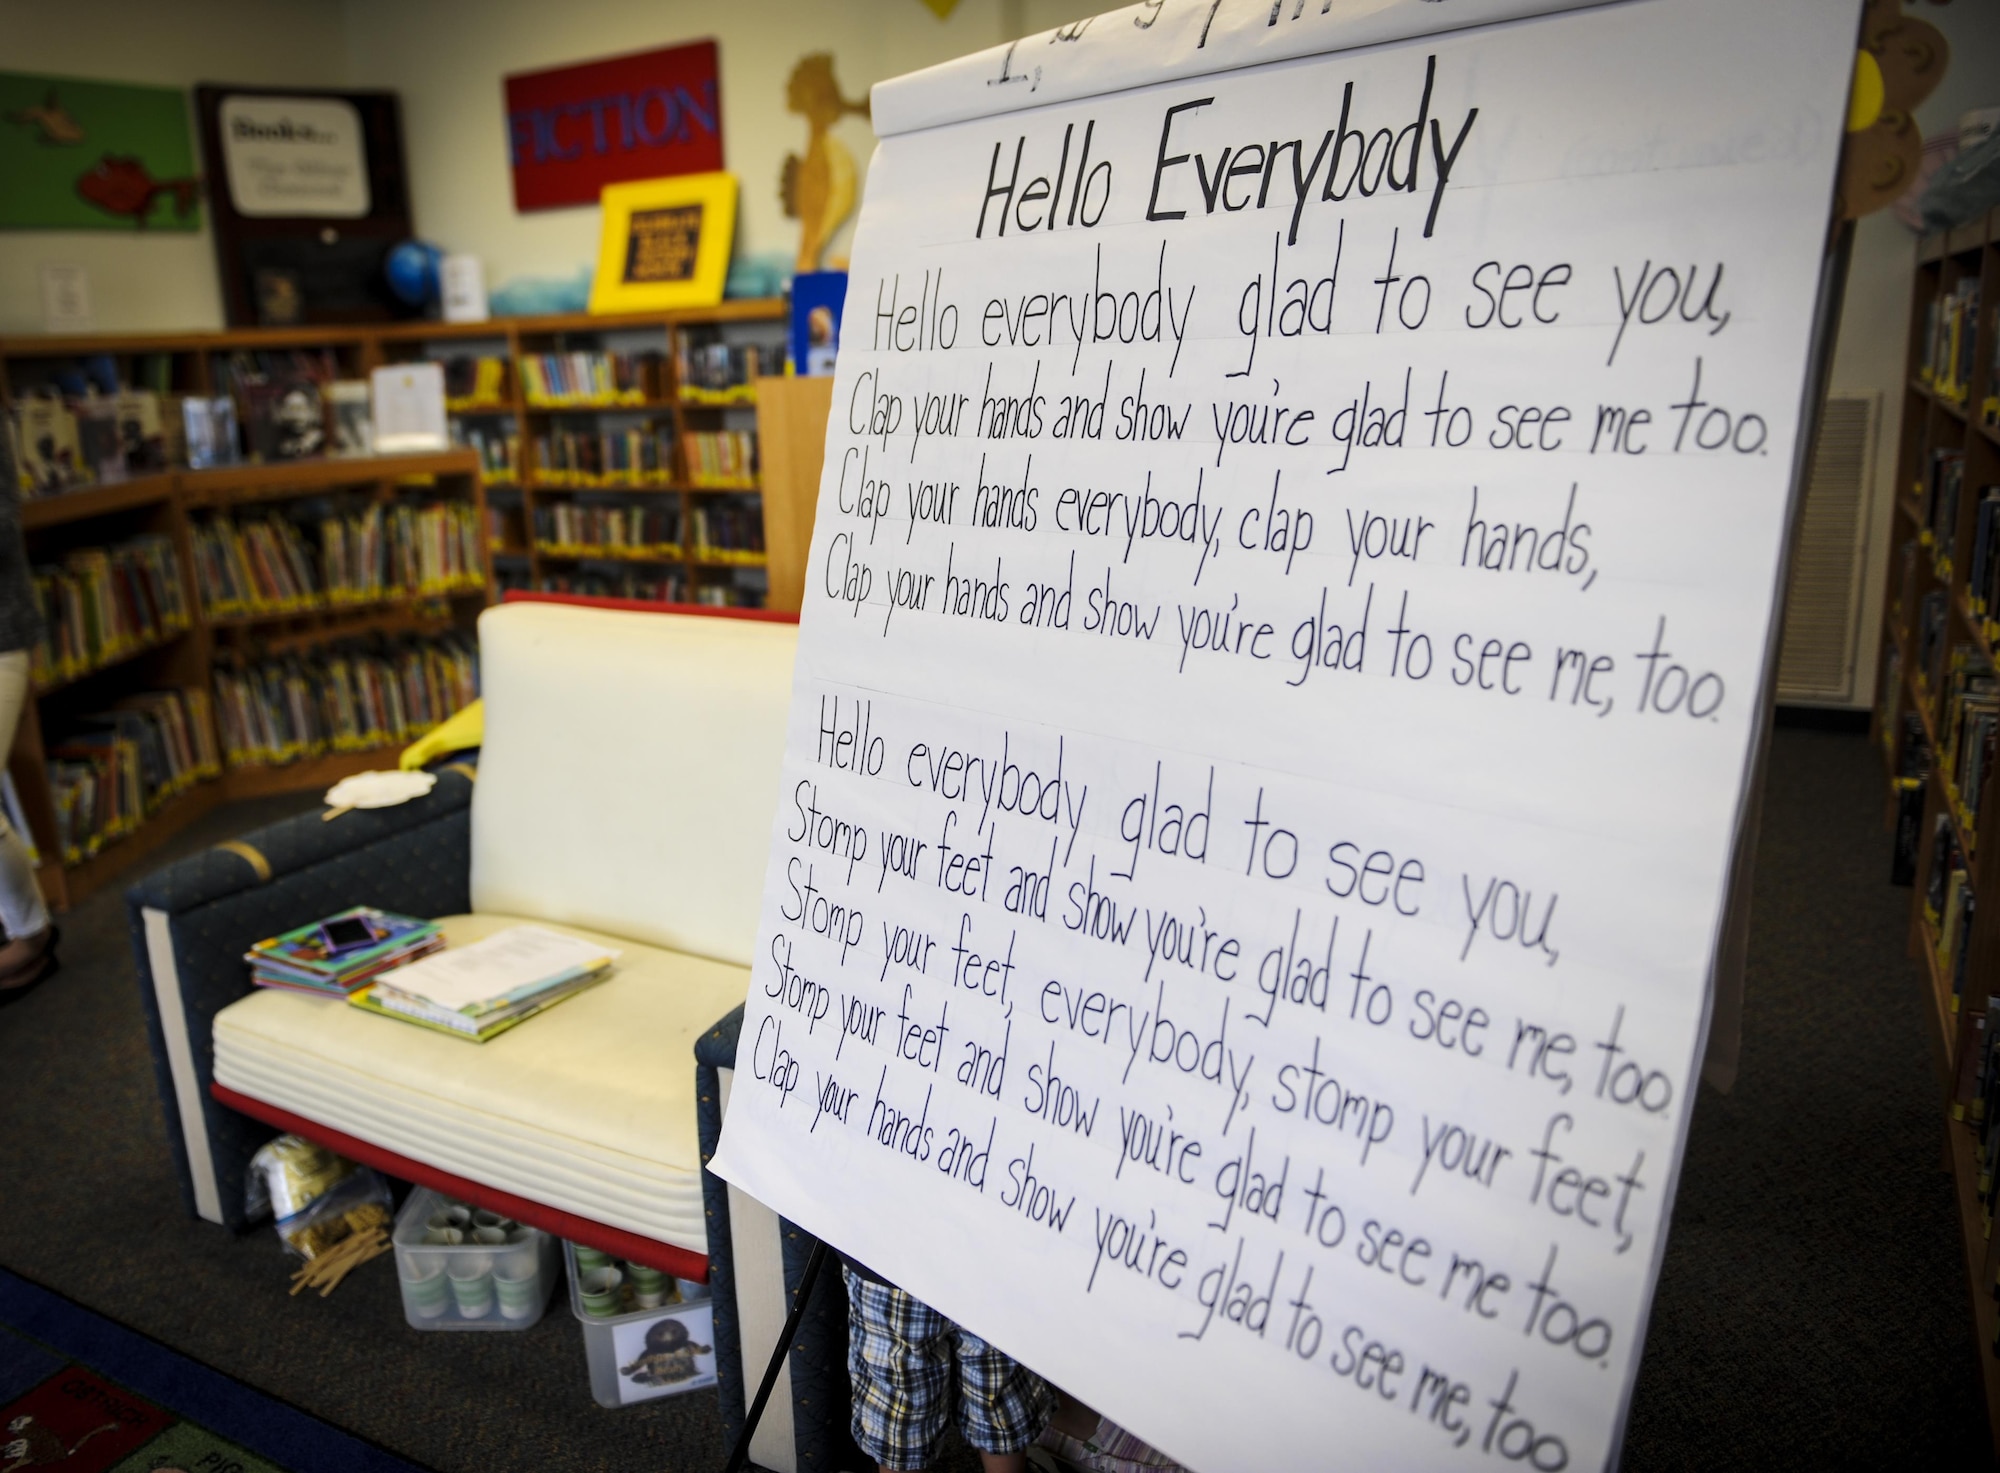 Books...
FICTION
Hello Everybody
Hello everybody glad to see you,
Clap your hands and show you're glad to see me too.
Clap your hands everybody, clap your hands,
Clap your hands and show you're glad to see me, too.
Hello everybody glad to see you,
Stomp your feet and show you're glad to see me, too.
Stomp your feet, everybody, stomp your feet,
Stomp your feet and show you're glad to see me too.
Clap your hands and show you're glad to see me, too